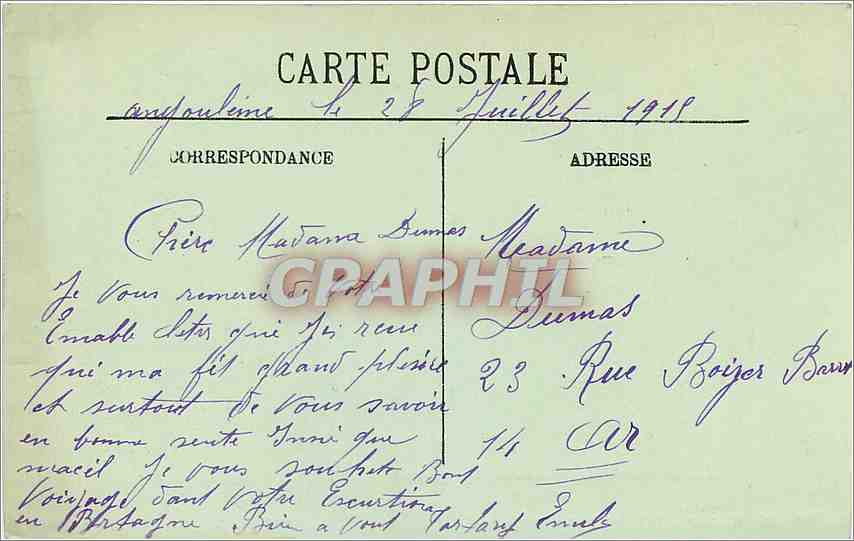 CARTE POSTALE
angoulême le 28 Juillet 1915
CORRESPONDANCE
ADRESSE
Chère Madame Dumas
Je vous remercie de votre
Emable letre que J'ai
qui ma fêt grand plesire
et surtout de vous savoir
en bonne sente que
Je vous souhete Bont
Voiyage dant votre Excurtion
en Bretagne Bien a vout Emile
Madame
Dumas
23 Rue Boizer Barr
14 Ar
CPAPHIL